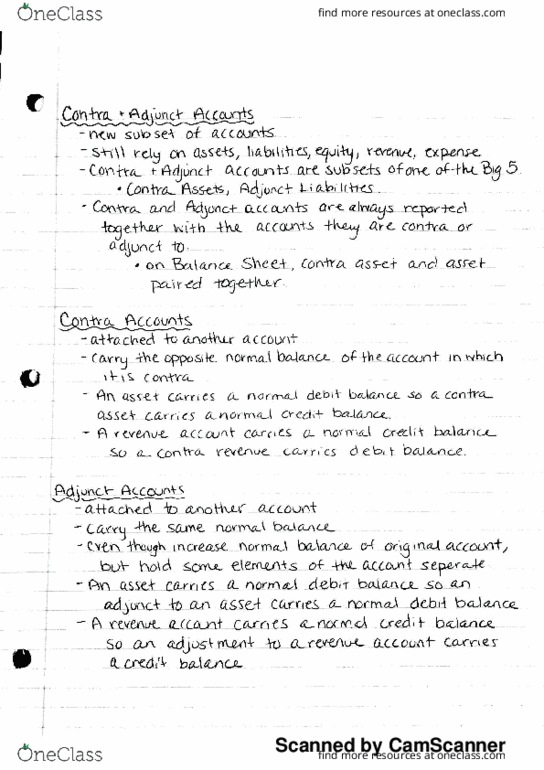 OneClass
find more resources at oneclass.com
Contra + Adjunct Accounts
- new subset of accounts
- still rely on assets, liabilities, equity, revenue, expense
- Contra + Adjunct accounts are subsets of one of the Big 5.
• Contra Assets, Adjunct Liabilities.
- Contra and Adjunct accounts are always reported
together with the accounts they are contra or
adjunct to.
• on Balance Sheet, contra asset and asset
paired together.
Contra Accounts
- attached to another account
- carry the opposite normal balance of the account in which
it is contra
- An asset carries a normal debit balance so a contra
asset carries a normal credit balance.
- A revenue account carries a normal credit balance
so a contra revenue carries debit balance.
Adjunct Accounts
- attached to another account
- carry the same normal balance
- even though increase normal balance of original account,
but hold some elements of the account seperate
- An asset carries a normal debit balance so an
adjunct to an asset carries a normal debit balance
- A revenue account carries a normal credit balance
so an adjustment to a revenue account carries
a credit balance
Scanned by CamScanner
OneClass
find more resources at oneclass.com